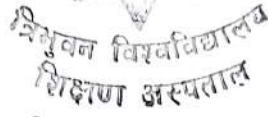 त्रिभुवन विश्वविद्यालय
शिक्षण अस्पताल